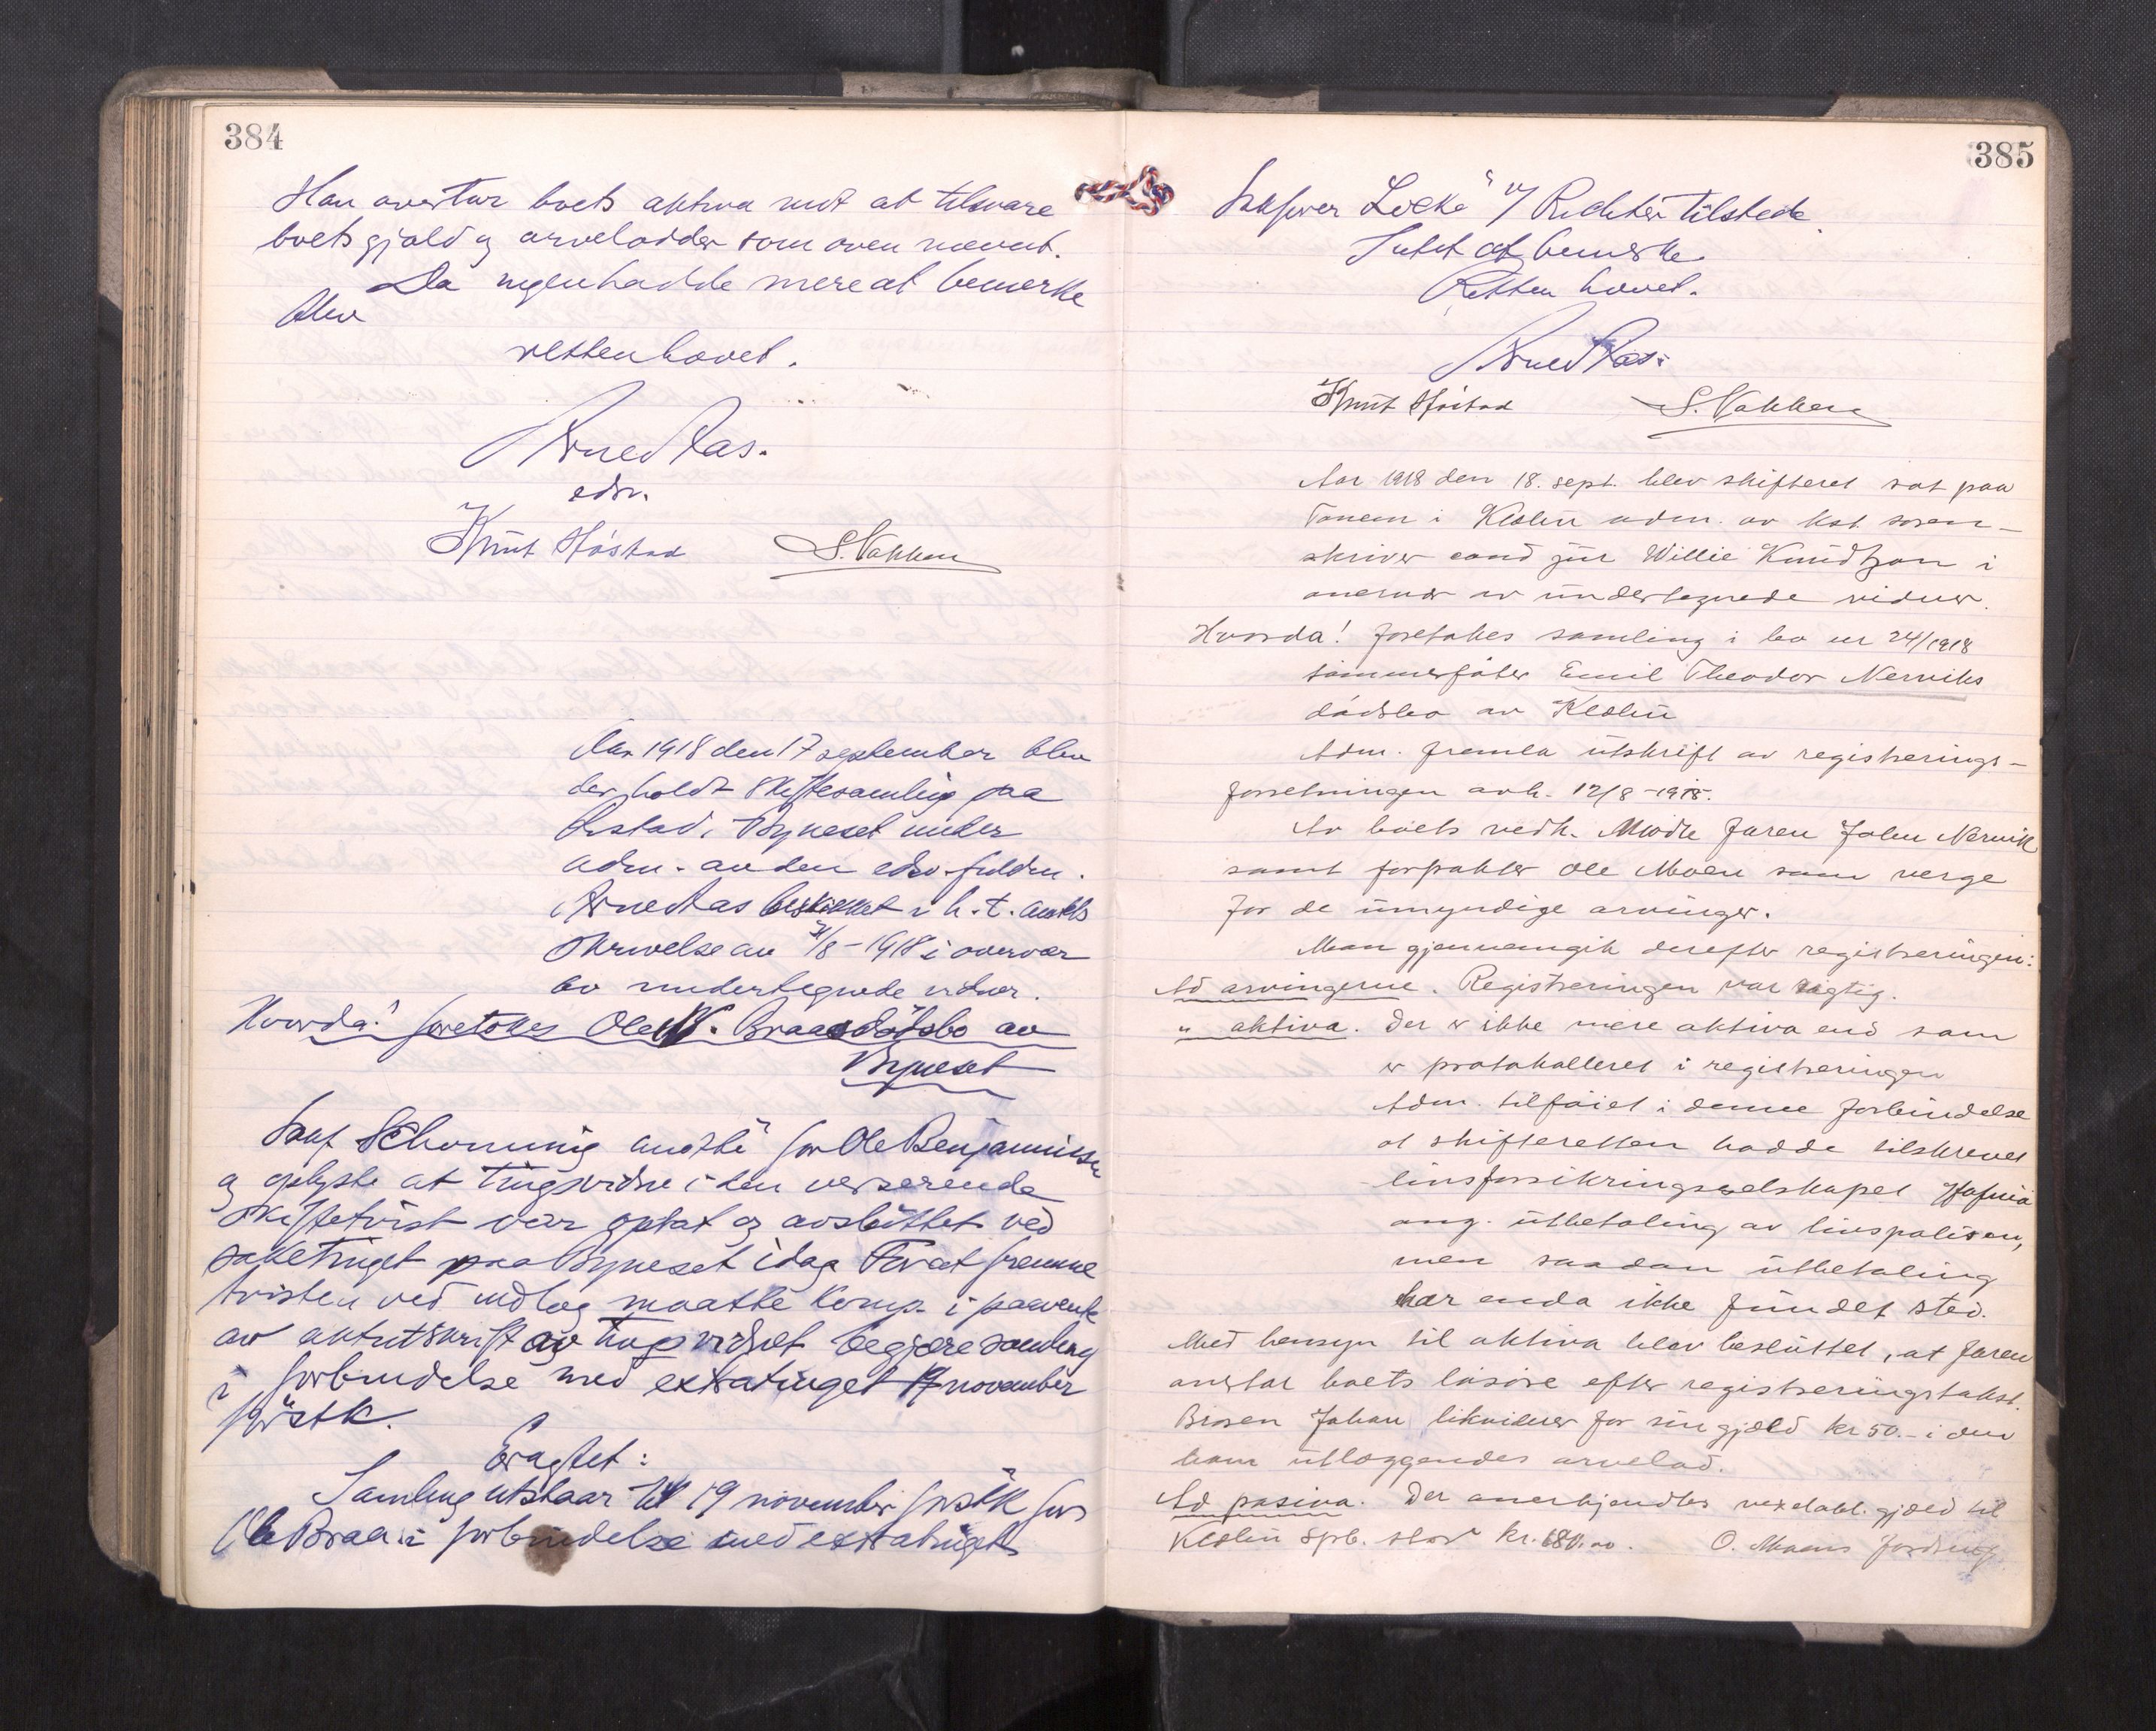 384
Han overtar boets aktiva mot at tilsvare
boets gjæld og arvelodder som oven nævnt.
Da ingen hadde mere at bemerke
blev
retten hævet.
Arne Aas.
edsv.
Knut Høstad S. Vakken
Aar 1918 den 17 september blev
der holdt skiftesamling paa
Byneset under
adm. av den edsv. fuldm.
Arne Aas beskikket i h. t. amtets
skrivelse av /8-1918 i overvær
av undertegnede vidner.
Hvorda! foretokes Ole Braas dødsbo av
Byneset
Sakf Schonning møtte for Ole Benjaminsen
og oplyste at tingsvidne i den verserende
skiftetvist var optat og avsluttet ved
saketinget paa Byneset idag For at fremme
tvisten ved indlæg maatte komp. i paavente
av aktutskrift av tingsvidnet begjære samling
i forbindelse med extratinget 19 november
førstk.
Eragtet:
Samling utstaar til 19 november førstk for
Ole Braa i forbindelse med extratinget
385
Sakfører Löcke v/ Richter tilstede.
Intet at bemerke
Retten hævet.
Arne Aas
Knut Høstad S. Vakken
Aar 1918 den 18. sept. blev skifteret sat paa
Tanem i Klæbu adm. av kst. soren-
skriver cand jur Willie Knudtzon i
overvær av undertegnede vidner.
Hvorda! foretakes samling i bo nr 24/1918
tømmerfløter Emil Theodor Nerviks
dødsbo av Klæbu
Adm. fremla utskrift av registrerings-
forretningen avh. 12/8-1918.
Av boets vedk. Møtte faren Johan Nervik
samt forpakter Ole Moen som verge
for de umyndige arvinger.
Man gjennemgik derefter registreringen:
Ad arvingerne. Registreringen var rigtig.
" aktiva. Der er ikke mere aktiva end som
er protokolleret i registreringen
Adm. tilføiet i denne forbindelse
at skifteretten hadde tilskrevet
livsforsikringsselskapet Hafnia
ang. utbetaling av livspolisen,
men saadan utbetaling
har enda ikke fundet sted.
Med hensyn til aktiva blev besluttet, at faren
overtar boets løsøre efter registreringstakst.
Broren Johan likviderer for sin gjæld kr 50.- i den
ham utlæggendes arvelod.
Ad pasiva. Der anerkjendtes gjæld til
Klæbu Spb. stor kr. 680.00. O. Moens fordring